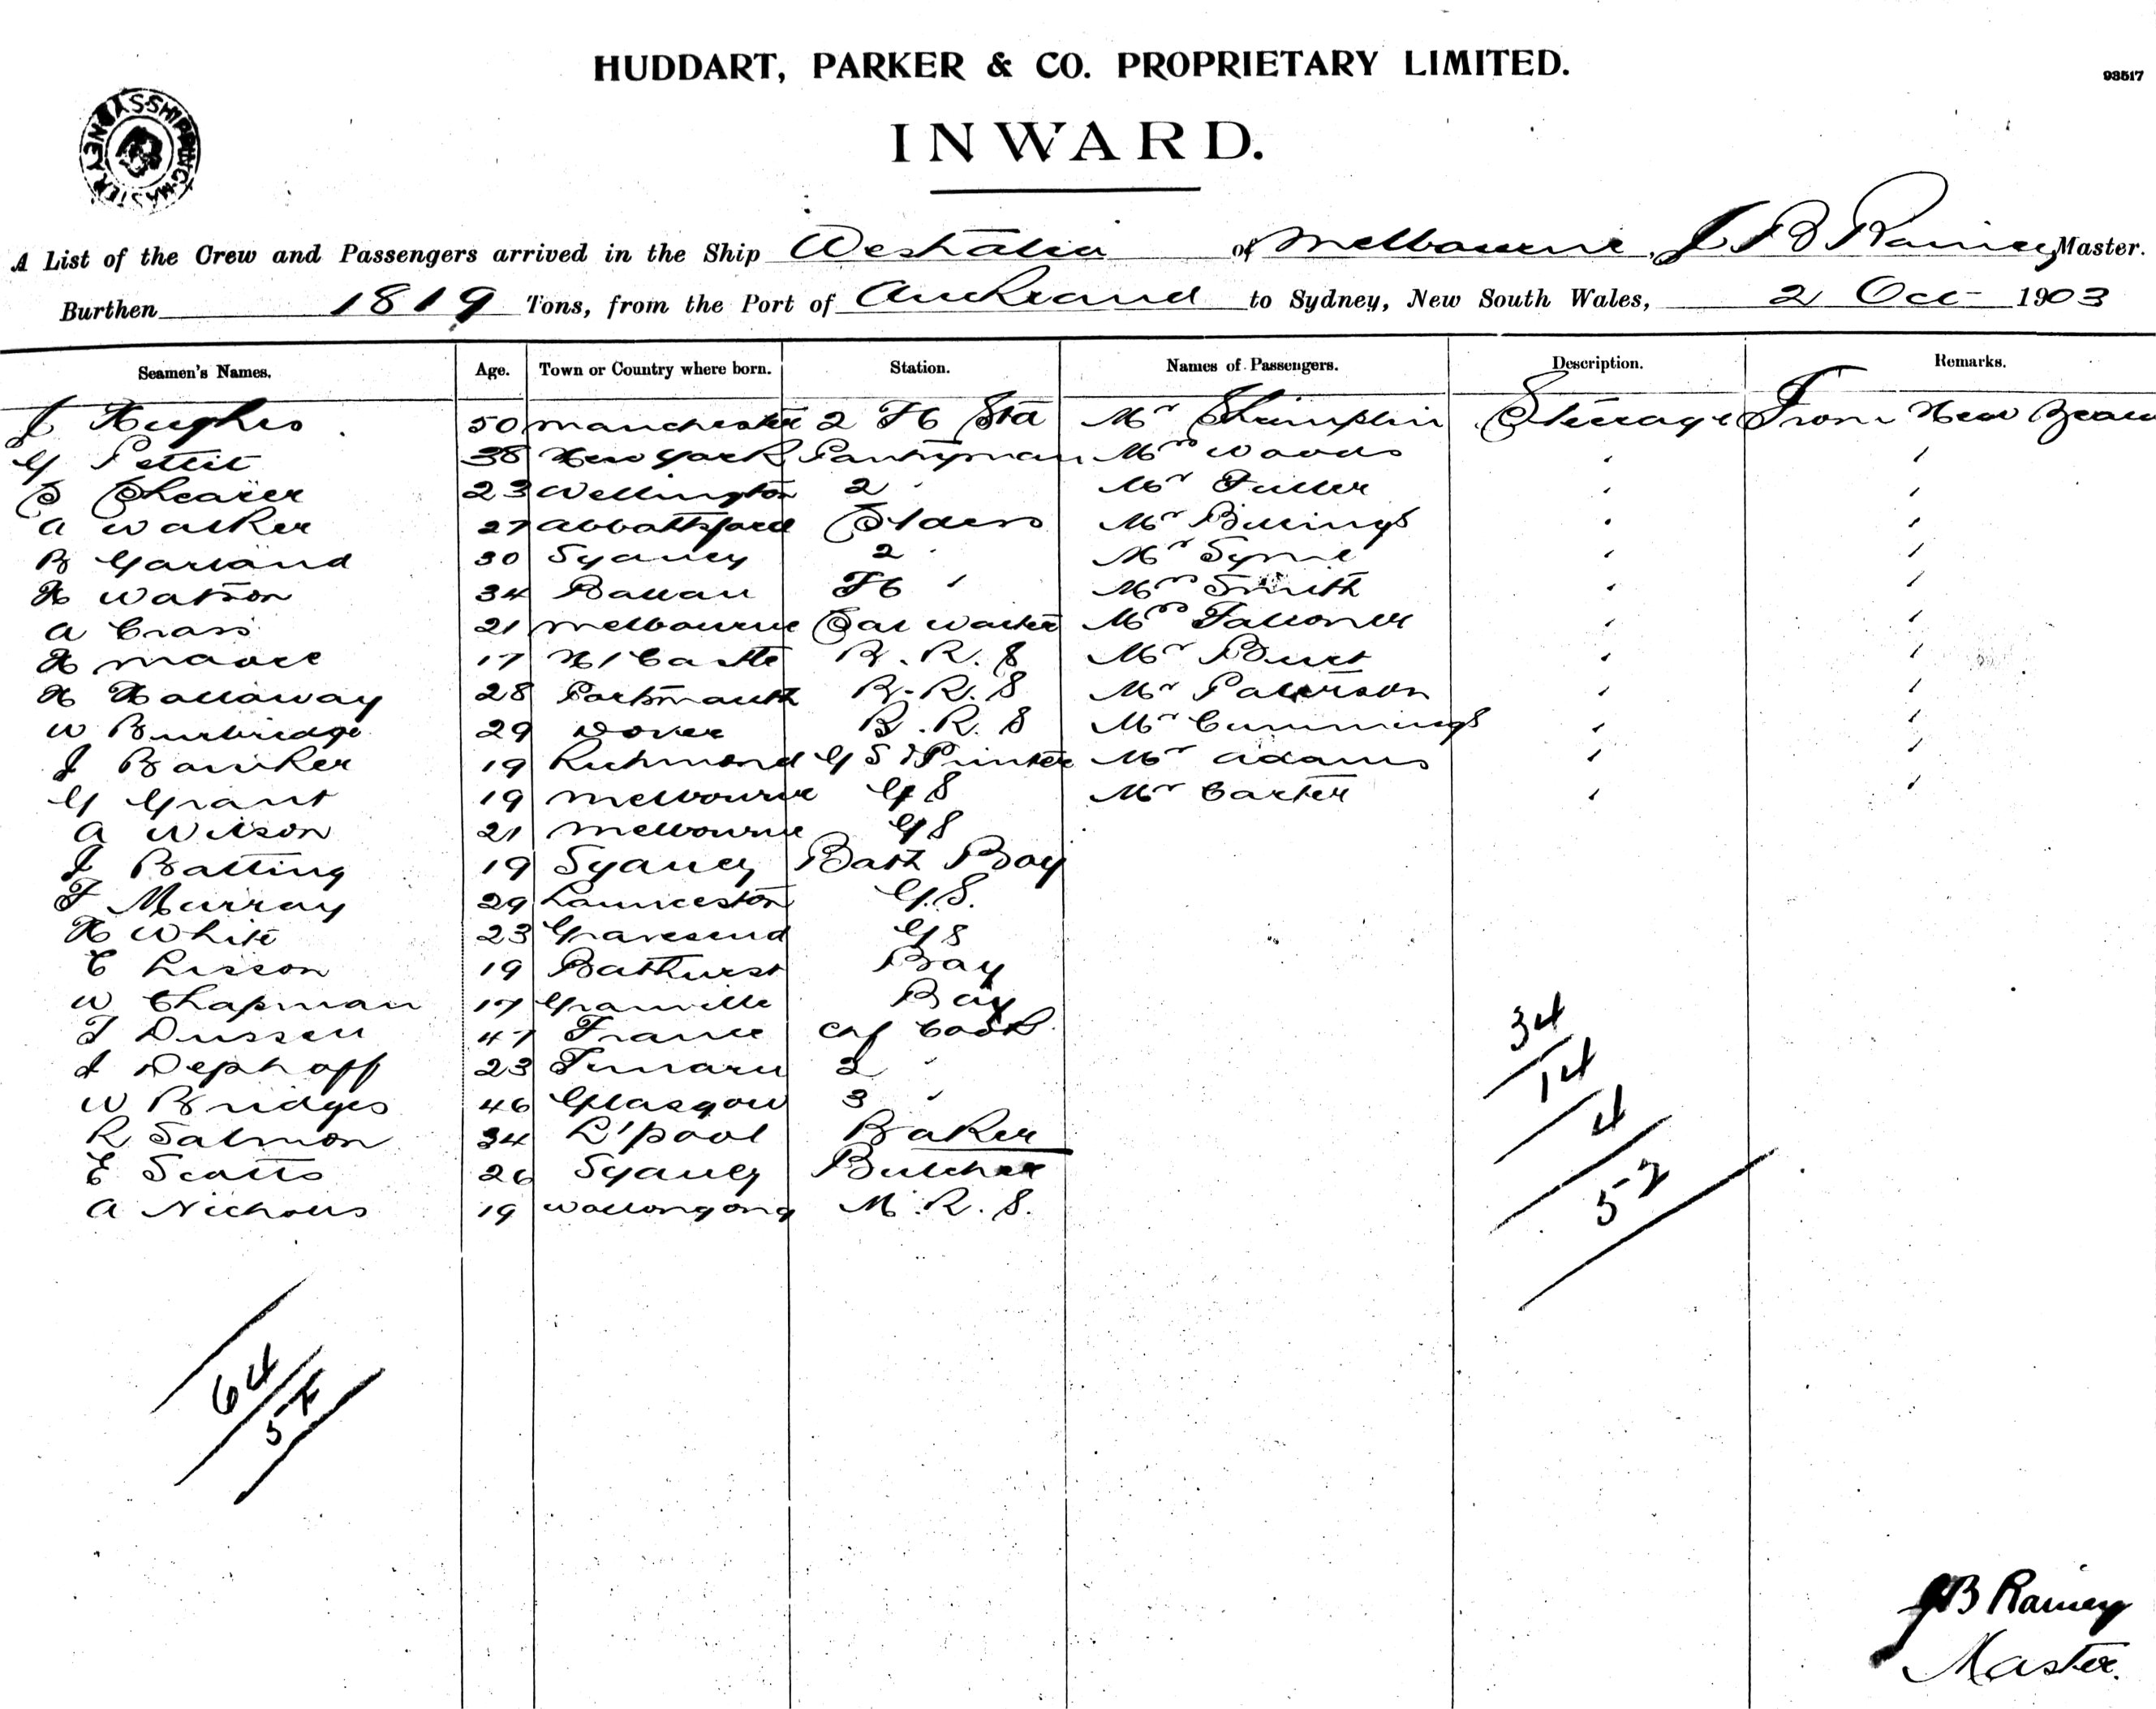 HUDDART, PARKER & CO. PROPRIETARY LIMITED.
93517
INWARD.
A List of the Crew and Passengers arrived in the Ship Westralia of Melbourne, J B Rainey Master.
Burthen 1819 Tons, from the Port of Auckland to Sydney, New South Wales, 2 Oct 1903
Seamen's Names. Age. Town or Country where born. Station. Names of Passengers. Description. Remarks.
J Hughes 50 Manchester 2 Mr Steerage From New
G Pettit 38 New York Pantryman Mrs Woods
S Shearer 23 Wellington 2 " Mr Fuller
A Walker 27 Abbottsford Mr Billings
B Garland 30 Sydney 2 " Mr Syme
H Watson 34 Ballan Mrs Smith
A Crass 21 Melbourne Mrs Falloner
H Moore 17 N/Castle B.R.S Mr Burt
H Hallaway 28 Portsmouth B.R.S Mr Paterson
W Burbridge 29 Dover B.R.S Mr Cummings
J Banker 19 Richmond G S & Printer Mr Adams
G Grant 19 Melbourne G S Mr Carter
A Wilson 21 Melbourne G S
J Batting 19 Sydney Bath Boy
F Murray 29 Launceston G.S.
H White 23 Gravesend G S
C Lisson 19 Bathurst Boy
W Chapman 17 Granville Boy
J Dussen 47 France Chf Cook
J Dephoff 23 Timaru 2 "
W Bridges 46 Glasgow 3 "
R Salmon 34 L'pool Baker
E Scotts 26 Sydney Butcher
A Nicholls 19 Wollongong M.R.S.
34
14
4
52
64
54
JB Rainey
Master.